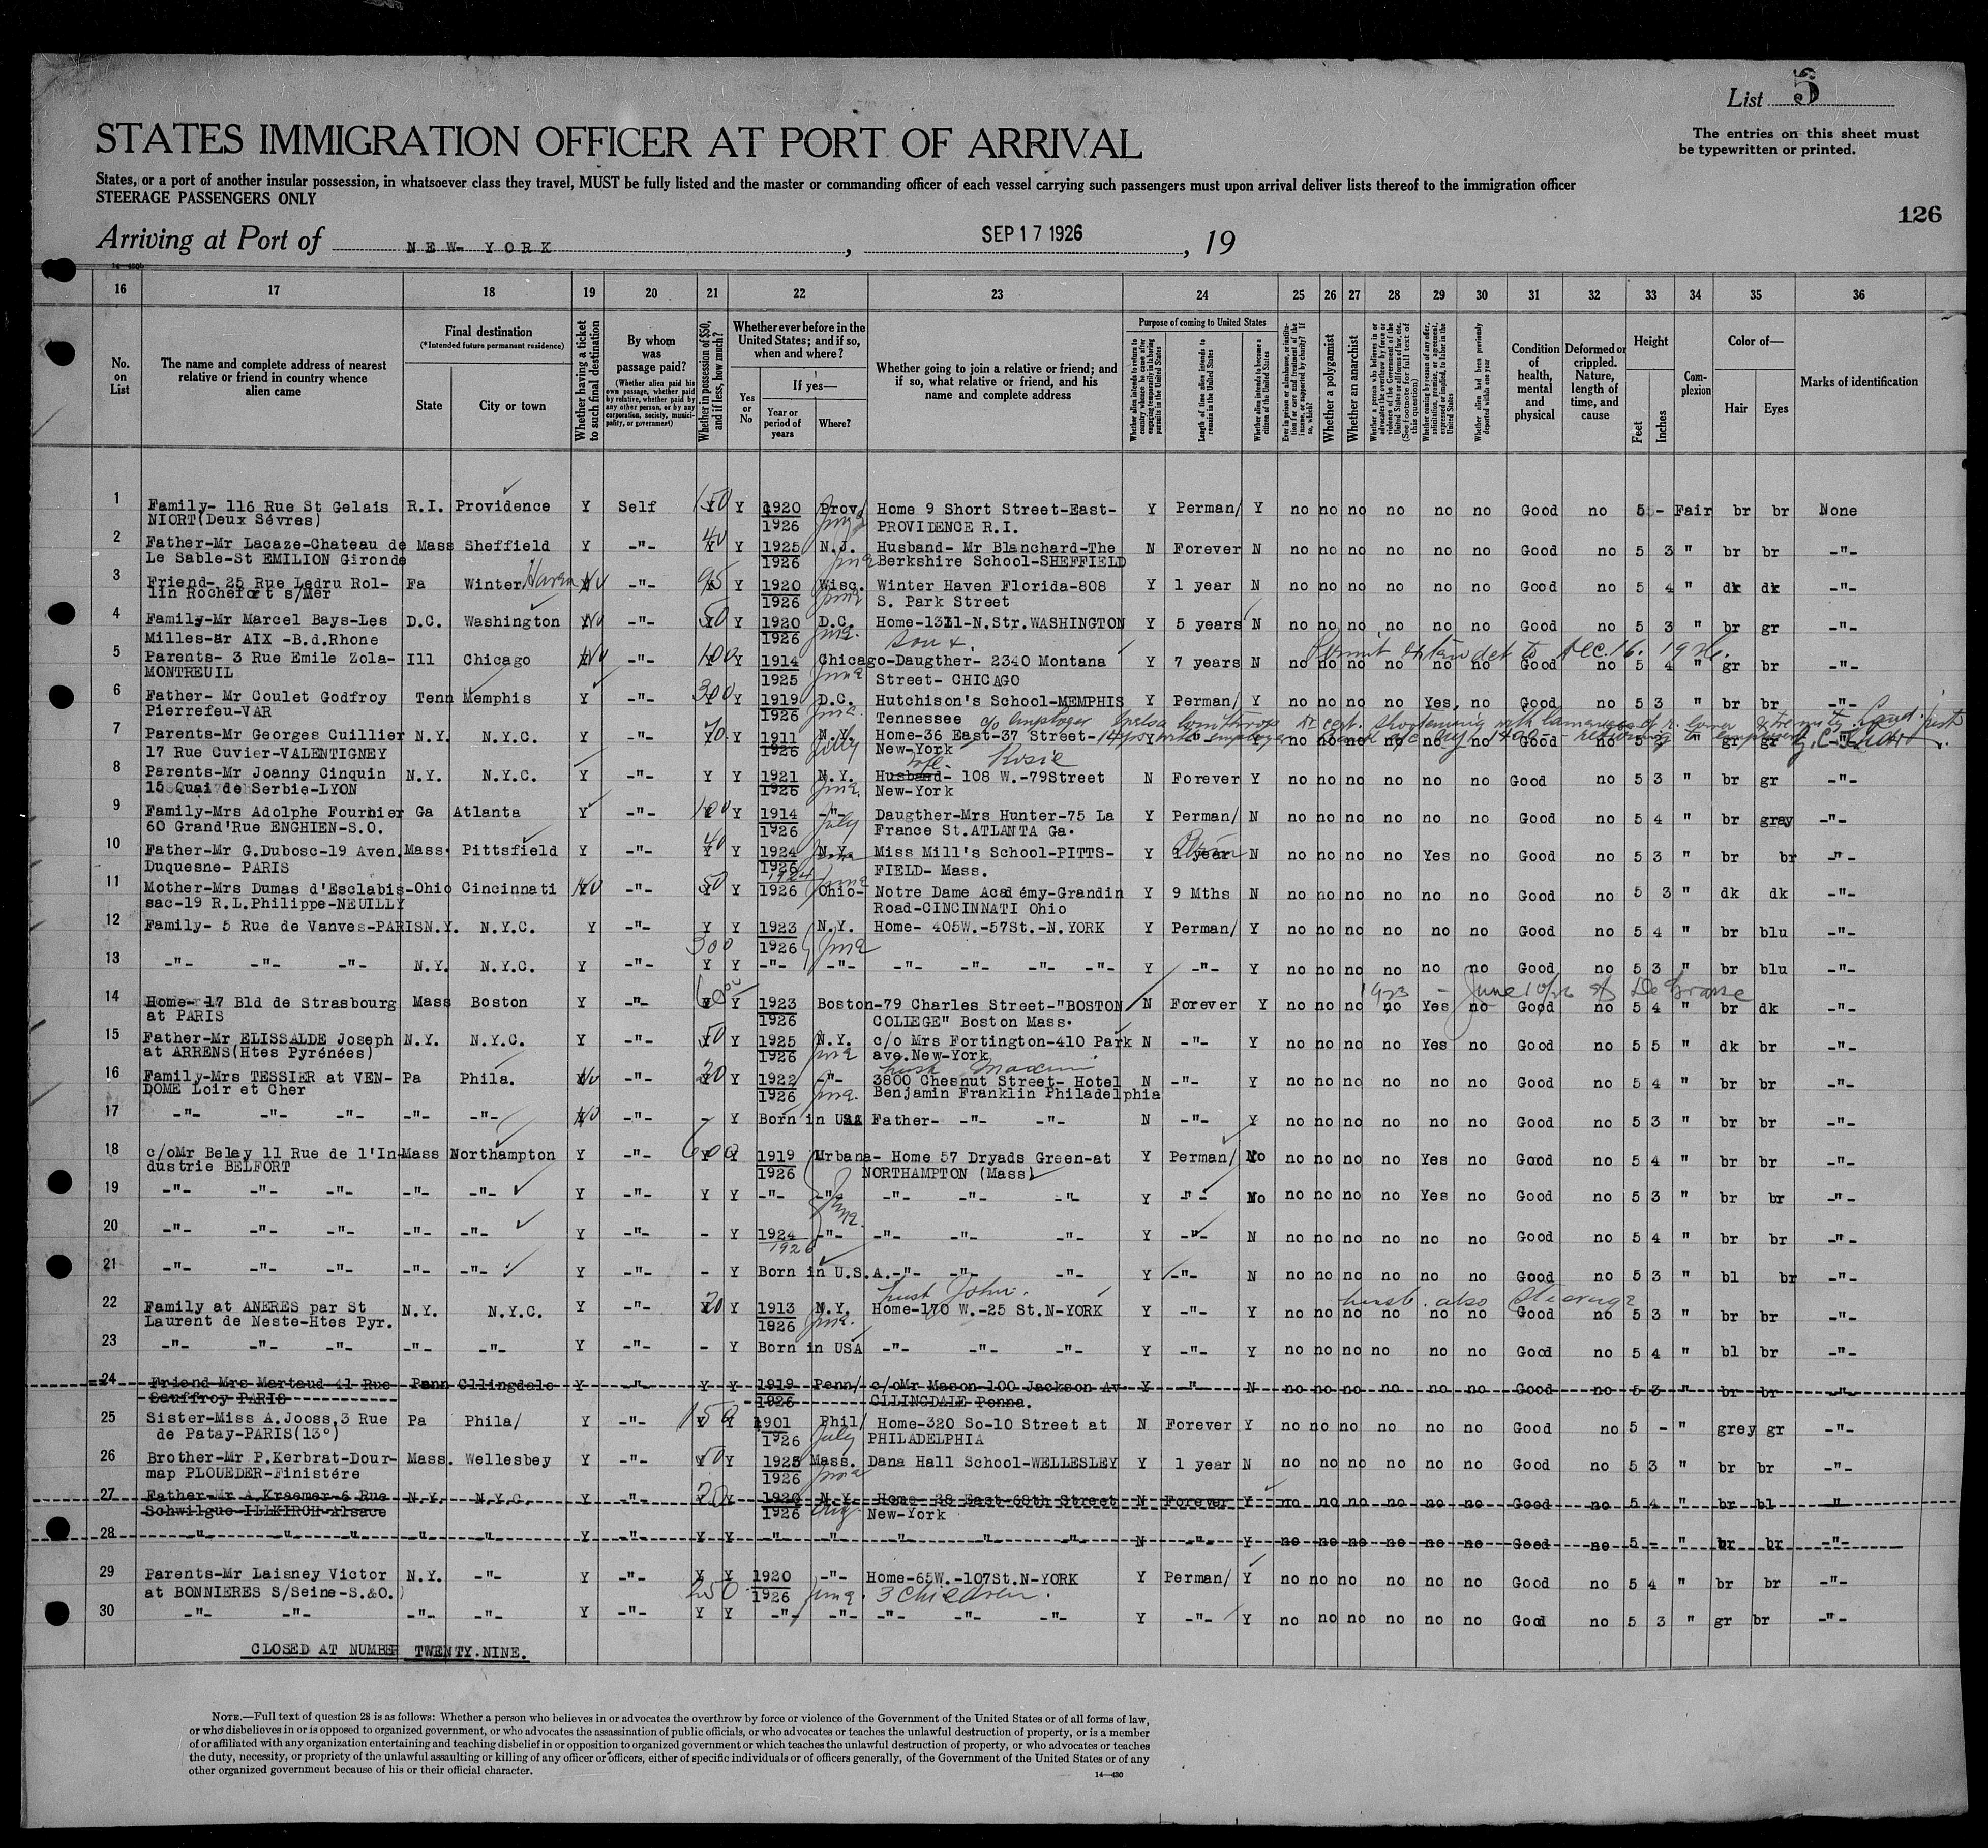 List 5
STATES IMMIGRATION OFFICER AT PORT OF ARRIVAL
The entries on this sheet must
be typewritten or printed.
States, or a port of another insular possession, in whatsoever class they travel, MUST be fully listed and the master or commanding officer of each vessel carrying such passengers must upon arrival deliver lists thereof to the immigration officer
STEERAGE PASSENGERS ONLY
126
Arriving at Port of NEW-YORK, SEP 17 1926, 19
16 17 18 19 20 21 22 23 24 25 26 27 28 29 30 31 32 33 34 35 36
No. on List
The name and complete address of nearest relative or friend in country whence alien came
Final destination
(*Intended future permanent residence)
State City or town
Whether having a ticket to such final destination
By whom was passage paid?
(Whether alien paid his own passage, whether paid by relative, whether paid by any other person, or by any corporation, society, municipality, or government)
Whether in possession of $50, and if less, how much?
Whether ever before in the United States; and if so, when and where?
Yes or No
If yes—
Year or period of years
Where?
Whether going to join a relative or friend; and if so, what relative or friend, and his name and complete address
Purpose of coming to United States
Length of time alien intends to remain in the United States
Whether alien intends to become a citizen of the United States
Whether a polygamist
Whether an anarchist
Condition of health, mental and physical
Deformed or crippled. Nature, length of time, and cause
Height
Feet Inches
Complexion
Color of—
Hair Eyes
Marks of identification
1 Family- 116 Rue St Gelais R.I. Providence Y Self 150 Y 1920 Prov/ Home 9 Short Street-East- Y Perman/ Y no no no no no no Good no 5 - Fair br br None
NIORT(Deux Sévres) 1926 PROVIDENCE R.I.
2 Father-Mr Lacaze-Chateau de Mass Sheffield Y -"- 40 Y 1925 N.J. Husband- Mr Blanchard-The N Forever N no no no no no no Good no 5 3 " br br -"-
Le Sable-St EMILION Gironde 1926 Berkshire School-SHEFFIELD
3 Friend- 25 Rue Ledru Rol- Fa Winter Haven No -"- 95 Y 1920 Wisc. Winter Haven Florida-808 Y 1 year N no no no no no no Good no 5 4 " dk dk -"-
lin Rochefort s/Mer 1926 S. Park Street
4 Family-Mr Marcel Bays-Les D.C. Washington No -"- 50 Y 1920 D.C. Home-1311-N.Str.WASHINGTON Y 5 years N no no no no no no Good no 5 3 " br gr -"-
Milles-ar AIX -B.d.Rhone 1926 son &
Permit extended to Dec. 16. 1926.
5 Parents- 3 Rue Emile Zola- Ill Chicago No -"- 100 Y 1914 Chicago-Daugther- 2340 Montana Y 7 years N no no no no no no Good no 5 4 " gr br -"-
MONTREUIL 1925 Street- CHICAGO
6 Father- Mr Coulet Godfroy Tenn Memphis Y -"- 300 Y 1919 D.C. Hutchison's School-MEMPHIS Y Perman/ Y no no no no Yes no Good no 5 3 " br br -"-
Pierrefeu-VAR 1926 Tennessee
7 Parents-Mr Georges Cuillier N.Y. N.Y.C. Y -"- 70 Y 1911 N.Y. Home-36 East-37 Street- Y
17 Rue Cuvier-VALENTIGNEY 1926 July New-York
wife. Rosie
8 Parents-Mr Joanny Cinquin N.Y. N.Y.C. Y -"- Y Y 1921 N.Y. Husband- 108 W.-79Street N Forever Y no no no no no no Good no 5 3 " br gr -"-
15 Quai de Serbie-LYON 1926 New-York
9 Family-Mrs Adolphe Fournier Ga Atlanta Y -"- 100 Y 1914 -"- Daugther-Mrs Hunter-75 La Y Perman/ N no no no no no no Good no 5 4 " br gray -"-
60 Grand'Rue ENGHIEN-S.O. 1926 July France St.ATLANTA Ga.
10 Father-Mr G.Dubosc-19 Aven. Mass. Pittsfield Y -"- 40 Y 1924 N.Y. Miss Mill's School-PITTS- Y 1 year N no no no no Yes no Good no 5 3 " br br -"-
Duquesne- PARIS 1926 FIELD- Mass.
11 Mother-Mrs Dumas d'Esclabis- Ohio Cincinnati No -"- 50 Y 1924 1926 Ohio- Notre Dame Académy-Grandin Y 9 Mths N no no no no no no Good no 5 3 " dk dk -"-
sac-19 R.L.Philippe-NEUILLY Road-CINCINNATI Ohio
12 Family- 5 Rue de Vanves-PARIS N.Y. N.Y.C. Y -"- Y Y 1923 N.Y. Home- 405W.-57St.-N.YORK Y Perman/ Y no no no no no no Good no 5 4 " br blu -"-
300 1926
13 -"- -"- -"- N.Y. N.Y.C. Y -"- Y Y -"- -"- -"- -"- -"- -"- Y -"- Y no no no no no no Good no 5 3 " br blu -"-
1923 - June 10/26 SS De Grasse
14 Home- 17 Bld de Strasbourg Mass Boston Y -"- Y 1923 Boston-79 Charles Street-"BOSTON N Forever Y no no no no Yes no Good no 5 4 " br dk -"-
at PARIS 1926 COLIEGE" Boston Mass.
15 Father-Mr ELISSALDE Joseph N.Y. N.Y.C. Y -"- 50 Y 1925 N.Y. c/o Mrs Fortington-410 Park N -"- Y no no no no Yes no Good no 5 5 " dk br -"-
at ARRENS(Htes Pyrénées) 1926 ave.New-York
16 Family-Mrs TESSIER at VEN- Pa Phila. No -"- 20 Y 1922 -"- 3800 Chesnut Street- Hotel N -"- Y no no no no no no Good no 5 4 " br br -"-
DOME Loir et Cher 1926 Benjamin Franklin Philadelphia
17 -"- -"- -"- -"- -"- No -"- - Y Born in USA Father- -"- -"- N -"- Y no no no no no no Good no 5 3 " br br -"-
18 c/oMr Beley 11 Rue de l'In- Mass Northampton Y -"- 600 Y 1919 Urbana- Home 57 Dryads Green-at Y Perman/ No no no no no Yes no Good no 5 4 " br br -"-
dustrie BELFORT 1926 NORTHAMPTON (Mass)
19 -"- -"- -"- -"- -"- Y -"- Y Y -"- -"- -"- -"- -"- Y -"- No no no no no Yes no Good no 5 3 " br br -"-
20 -"- -"- -"- -"- -"- Y -"- - Y 1924 -"- -"- -"- -"- Y -"- N no no no no no no Good no 5 4 " br br -"-
1926
21 -"- -"- -"- -"- -"- Y -"- - Y Born in U.S.A.-"- -"- -"- Y -"- N no no no no no no Good no 5 3 " bl br -"-
husb John. husb. also steerage
22 Family at ANERES par St N.Y. N.Y.C. Y -"- 20 Y 1913 N.Y. Home-170 W.-25 St.N-YORK Y -"- Y no no no no no no Good no 5 3 " br br -"-
Laurent de Neste-Htes Pyr. 1926
23 -"- -"- -"- -"- -"- Y -"- - Y Born in USA -"- -"- -"- Y -"- Y no no no no no no Good no 5 4 " bl br -"-
24 Friend Mrs Martaud 41 Rue Penn Cllingdale Y -"- Y Y 1919 Penn/ c/oMr Mason-100 Jackson Av Y -"- N no no no no no no Good no 5 3 " br br -"-
Sauffroy PARIS 1926 CLLINGDALE Penna.
25 Sister-Miss A.Jooss,3 Rue Pa Phila/ Y -"- 150 Y 1901 Phil/ Home-320 So-10 Street at N Forever Y no no no no no no Good no 5 - " grey gr -"-
de Patay-PARIS(13°) 1926 July PHILADELPHIA
26 Brother-Mr P.Kerbrat-Dour- Mass. Wellesbey Y -"- 50 Y 1925 Mass. Dana Hall School-WELLESLEY Y 1 year N no no no no no no Good no 5 3 " br br -"-
map PLOUEDER-Finistére 1926
27 Father-Mr A.Kraemer-6 Rue N.Y. N.Y.C. Y -"- 20 Y 1920 N.Y. Home- 38 East-68th Street N Forever Y no no no no no no Good no 5 4 " br bl "
Schwilgue-ILLKIRCH-Alsace 1926 Aug. New-York
28 -"- -"- -"- -"- -"- Y -"- Y Y -"- -"- -"- -"- -"- N -"- Y no no no no no no Good no 5 - " br br -"-
29 Parents-Mr Laisney Victor N.Y. -"- Y -"- Y Y 1920 -"- Home-65W.-107St.N-YORK Y Perman/ Y no no no no no no Good no 5 4 " br br -"-
at BONNIERES S/Seine-S.&O.) 250 1926 3 children.
30 -"- -"- -"- -"- Y -"- Y Y -"- -"- -"- -"- -"- Y -"- Y no no no no no no Good no 5 3 " gr br -"-
CLOSED AT NUMBER TWENTY.NINE.
NOTE.—Full text of question 28 is as follows: Whether a person who believes in or advocates the overthrow by force or violence of the Government of the United States or of all forms of law,
or who disbelieves in or is opposed to organized government, or who advocates the assassination of public officials, or who advocates or teaches the unlawful destruction of property, or is a member
of or affiliated with any organization entertaining and teaching disbelief in or opposition to organized government or which teaches the unlawful destruction of property, or who advocates or teaches
the duty, necessity, or propriety of the unlawful assaulting or killing of any officer or officers, either of specific individuals or of officers generally, of the Government of the United States or of any
other organized government because of his or their official character.
14—430